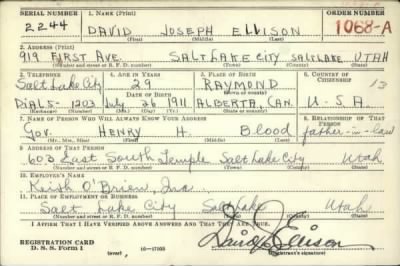 SERIAL NUMBER 1. NAME (Print) ORDER NUMBER
2244 DAVID JOSEPH ELLISON 1068-A
(First) (Middle) (Last)
2. ADDRESS (Print)
919 FIRST AVE. SALT LAKE CITY SALT LAKE UTAH
(Number and street or R. F. D. number) (Town) (County) (State)
3. TELEPHONE 4. AGE IN YEARS 5. PLACE OF BIRTH 6. COUNTRY OF CITIZENSHIP
Salt Lake City 29 RAYMOND 13
DATE OF BIRTH (Town or county)
DIAL 5-1203 July 26 1911 ALBERTA, CAN. U-S A.
(Exchange) (Number) (Mo.) (Day) (Yr.) (State or country)
7. NAME OF PERSON WHO WILL ALWAYS KNOW YOUR ADDRESS 8. RELATIONSHIP OF THAT PERSON
Gov. HENRY H. Blood father-in-law
(Mr., Mrs., Miss) (First) (Middle) (Last)
9. ADDRESS OF THAT PERSON
603 East South Temple Salt Lake City Utah
(Number and street or R. F. D. number) (Town) (County) (State)
10. EMPLOYER'S NAME
Keith O'Brien, Inc.
11. PLACE OF EMPLOYMENT OR BUSINESS
Salt Lake City Salt Lake Utah
(Number and street or R. F. D. number) (Town) (County) (State)
I AFFIRM THAT I HAVE VERIFIED ABOVE ANSWERS AND THAT THEY ARE TRUE.
REGISTRATION CARD
D. S. S. Form 1 16-17105 David J. Ellison
(Registrant's signature)